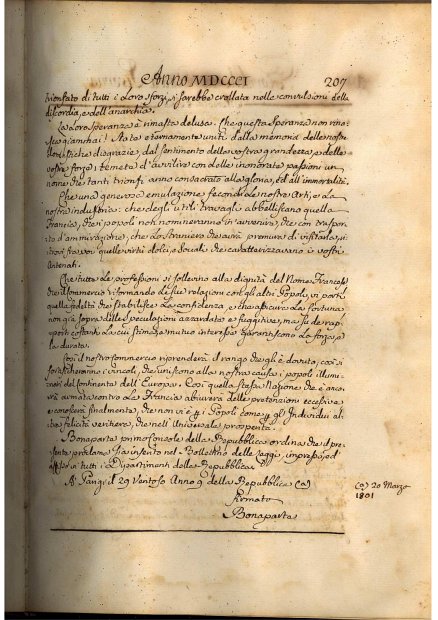 Anno MDCCCI 207
trionfato di tutti i loro sforzi, si sarebbe crollata nelle convulsioni della
discordia, e dell'anarchia.
La loro speranza è rimasta delusa. Che questa speranza non rina-
sca giammai! State eternamente uniti dalla memoria delle vostre
disgrazie, dal sentimento della vostra grandezza, e delle
vostre forze; temete d'avvilire con delle inonorate passioni un
nome, che tanti trionfi anno consacrato alla gloria, ed all'immortalità.
Che una generosa emulazione fecondi le nostre Arti, e la
nostra industria: che degli utili travagli abbelliscano quella
Francia, che i popoli non nomineranno in avvenire, che con traspor-
to d'ammirazione; che lo straniero che avrà premura di visitarla, vi
ritrovi fra voi quelle virtù dolci, e sociali, che caratterizzavano i vostri
Antenati.
Che tutte le professioni si sollevino alla dignità del Nome Francese,
che il commercio riformando le sue relazioni con gli altri Popoli, vi porti
quella fedeltà che stabilisce la confidenza, e che assicura la fortuna
non già sopra delle speculazioni azzardate e fuggitive, ma su de rap-
porti costanti, la cui stima, e mutuo interesse garantiscono la forza, e
la durata.
Così il nostro commercio riprenderà il rango che gli è dovuto, così si
fortificheranno i vincoli, che uniscono alla nostra causa i popoli illumi-
nati del continente dell'Europa. Così quella stessa Nazione che è anco-
ra armata contro la Francia abiurerà delle pretenzioni eccessive
e conoscerà finalmente, che non vi è per i Popoli come per gli Individui al-
tra felicità veritiera, che nell'Universale prosperità.
Bonaparte primo Console della Repubblica ordina che il pre-
sente proclama sia inserto nel Bollettino delle Leggi, impresso, ed
affisso in tutti i Dipartimenti della Repubblica.
A Parigi il 29 Ventoso Anno 9 della Repubblica (a)
(a) 20 Marzo
1801
Firmato
Bonaparte